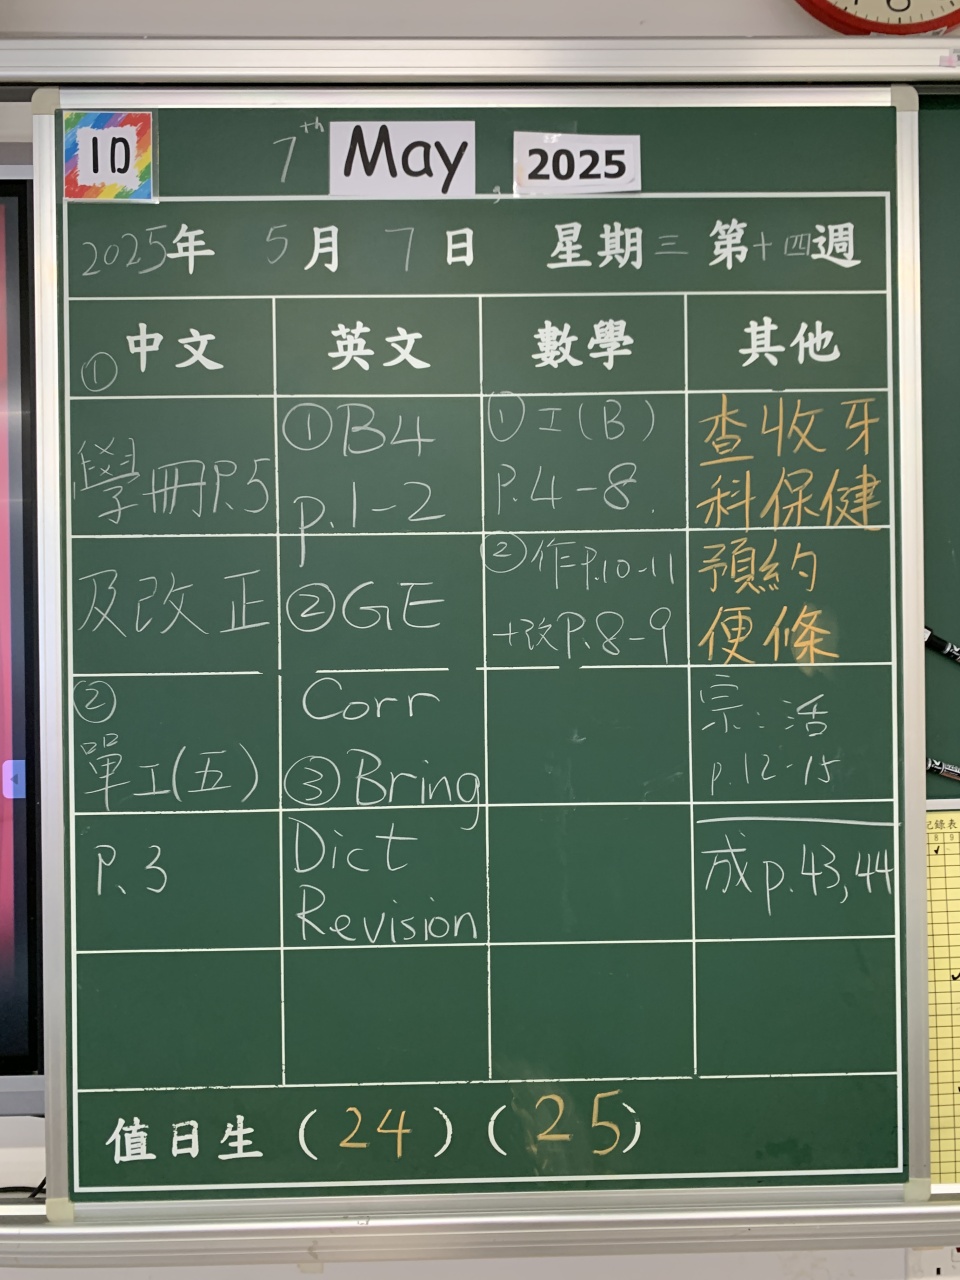 1D
7th May, 2025
2025年 5月 7日 星期三 第十四週
中文 英文 數學 其他
①
學冊P.5
及改正
②
單工(五)
P.3
①B4
p.1-2
②GE
Corr
③Bring
Dict
Revision
①工(B)
P.4-8.
②作P.10-11
+改P.8-9
查收牙
科保健
預約
便條
宗:活
p.12-15
成p.43,44
值日生 (24) (25)
記錄表
8 9